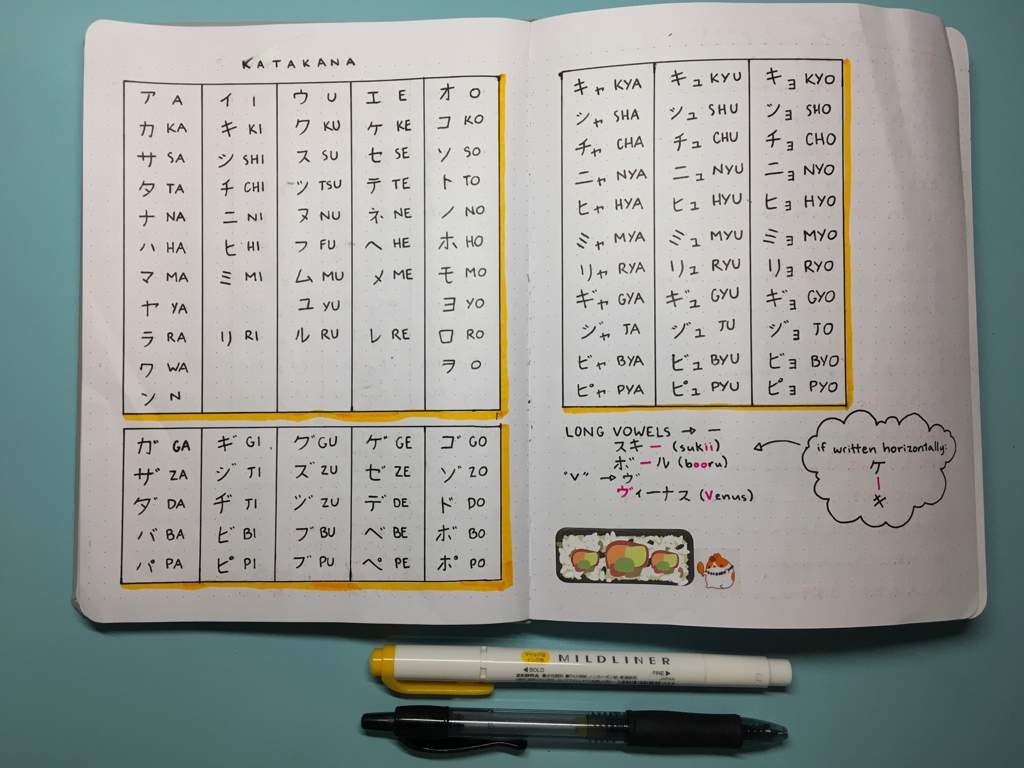 KATAKANA
ア A イ I ウ U エ E オ O
カ KA キ KI ク KU ケ KE コ KO
サ SA シ SHI ス SU セ SE ソ SO
タ TA チ CHI ツ TSU テ TE ト TO
ナ NA ニ NI ヌ NU ネ NE ノ NO
ハ HA ヒ HI フ FU ヘ HE ホ HO
マ MA ミ MI ム MU メ ME モ MO
ヤ YA ユ YU ヨ YO
ラ RA リ RI ル RU レ RE ロ RO
ワ WA ヲ O
ン N
ガ GA ギ GI グ GU ゲ GE ゴ GO
ザ ZA ジ JI ズ ZU ゼ ZE ゾ ZO
ダ DA ヂ JI ヅ ZU デ DE ド DO
バ BA ビ BI ブ BU ベ BE ボ BO
パ PA ピ PI プ PU ペ PE ポ PO
キャ KYA キュ KYU キョ KYO
シャ SHA シュ SHU ショ SHO
チャ CHA チュ CHU チョ CHO
ニャ NYA ニュ NYU ニョ NYO
ヒャ HYA ヒュ HYU ヒョ HYO
ミャ MYA ミュ MYU ミョ MYO
リャ RYA リュ RYU リョ RYO
ギャ GYA ギュ GYU ギョ GYO
ジャ JA ジュ JU ジョ JO
ビャ BYA ビュ BYU ビョ BYO
ピャ PYA ピュ PYU ピョ PYO
LONG VOWELS → ー
スキー (sukii)
ボール (booru)
"V" → ヴ
ヴィーナス (Venus)
if written horizontally:
ケ
｜
キ
MILDLINER
◀BOLD FINE▶
ZEBRA JAPAN